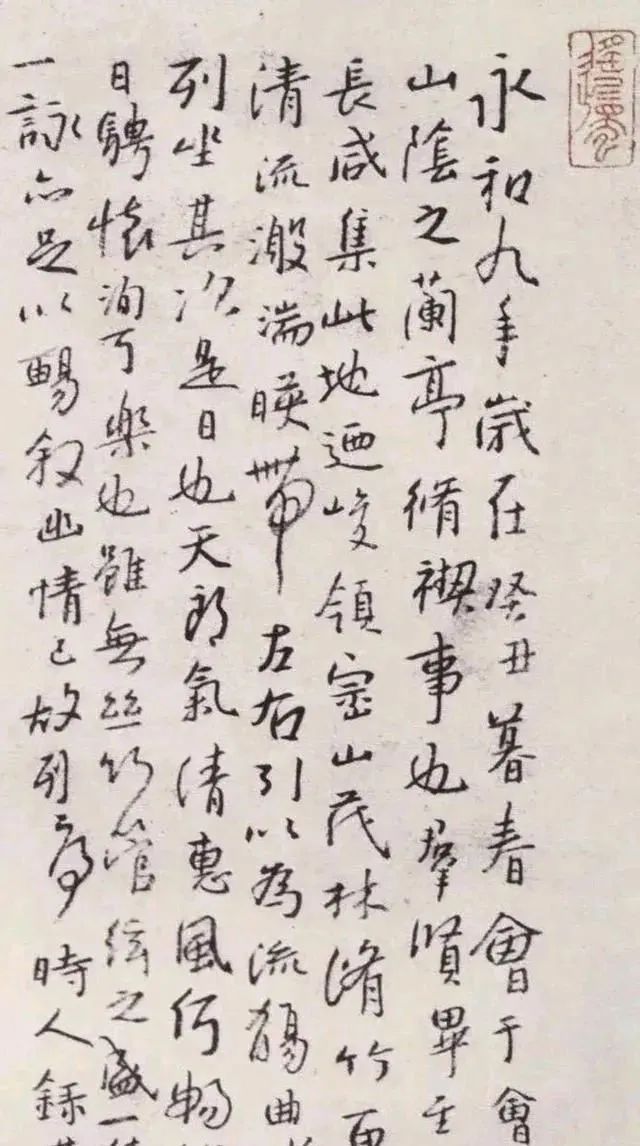 永和九年歲在癸丑暮春會于會
山陰之蘭亭脩禊事也羣賢畢至
長咸集此地迺峻領崇山茂林脩竹
清流激湍暎帶左右引以為流觴曲
列坐其次是日也天朗氣清惠風何暢
日騁懷洵可樂也雖無絲竹管絃之盛一
一詠亦足以暢叙幽情已故列序時人錄